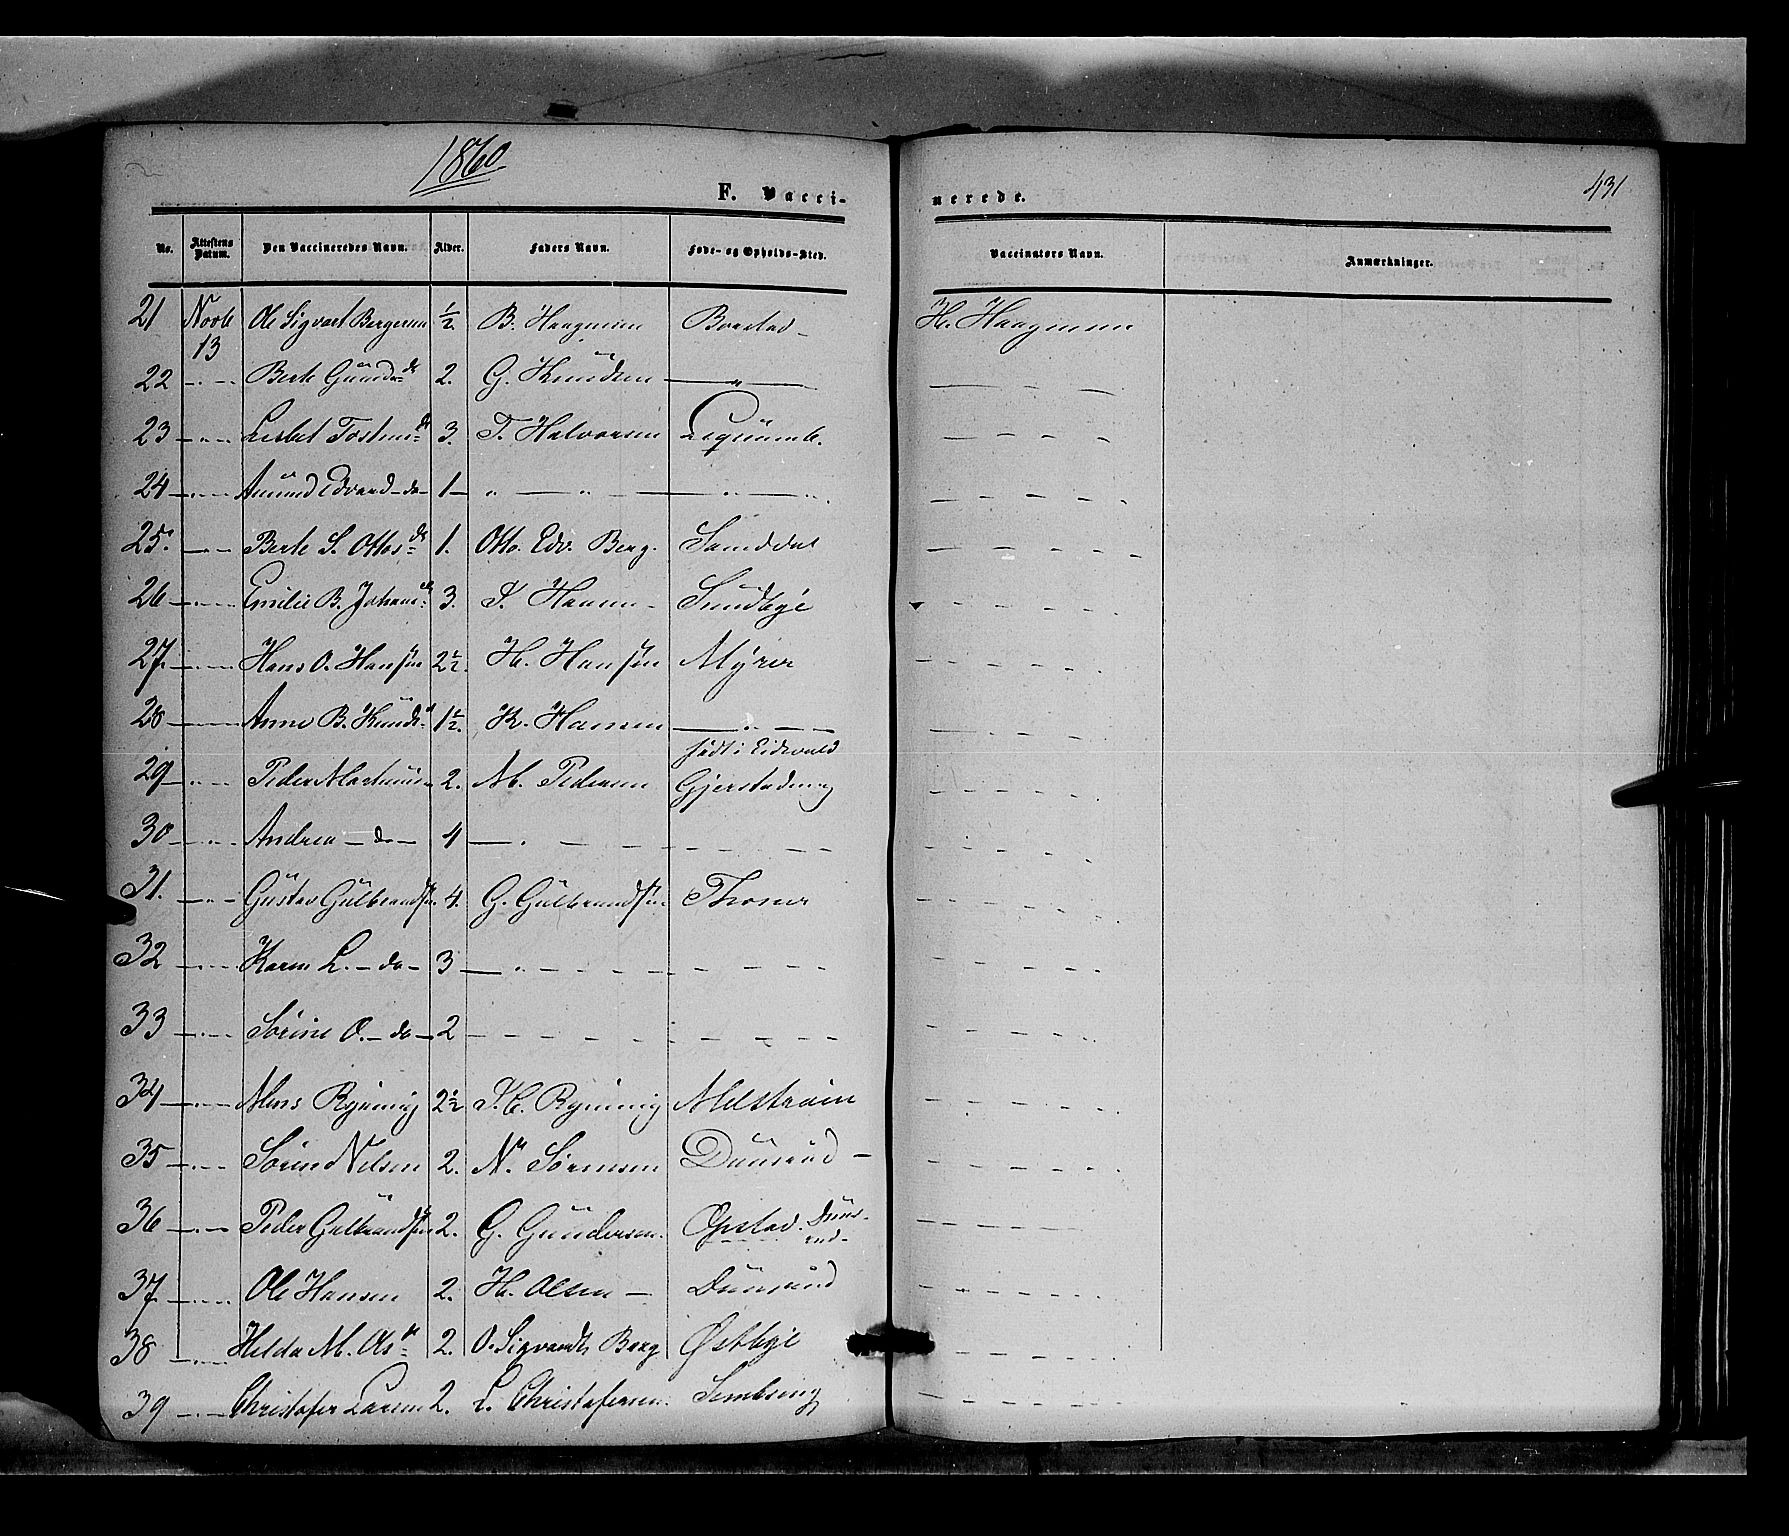 1860
431
F. Vacci-
nerede.
No. Attestens Datum. Den Vaccineredes Navn. Alder. Faders Navn. Føde- og Opholds-Sted. Vaccinators Navn. Anmærkninger.
21 Novb 13 Ole Sigvart Bergersen ½ B. Haagensen H. Haagensen
22 — " — Berte Gunds dr 2. G. Knudsen — " —
23 — " — Lisbet Tostens dr 3. T. Halvorsen
24 — " — Amund Edvard — do — 1 — " — " — " — "
25. — " — Berte S. Ottos dr 1. Otto Edv. Berg.
26 — " — Emilie B. Johans dr 3. J. Hansen — Sundbye
27. — " — Hans O. Hansen 2½. H. Hansen Myrer
28 — Anne B. Knuds d 1½. K. Hansen — " —
29 — " — Peder Martinius 2. M. Pedersen født i Eidsvold
Gjerstadeng
30 — " — Andrea — do — 4 — " —
31. — " — Gustav Gulbrandsen 4. G. Gulbrandsen Thorer
32 — " — Karen L. — do — 3 — " —
33 — " — Sørine O. — do — 2
34 — " — Mons Ryning 2½ J. C. Ryning Melstrøm
35 — " — Søren Nilsen 2. N. Sørensen Dunrud —
36 — " — Peder Gulbrandsen 2. G. Gundersen. Opstad. Dunrud
37. — " — Ole Hansen 2. H. Olsen — Dunrud
38 — " — Helda M. Ols dr 2. O. Sigvardt Berg Østbye
39 — " — Christofer Larsen 2. L. Christofersen.